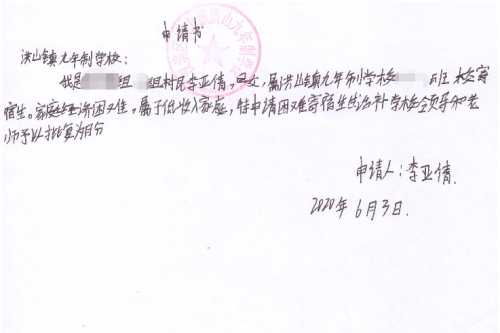 申请书
洪山镇九年制学校：
我是 组 组村民李亚倩，女，属洪山镇九年制学校 班 住校寄
宿生。家庭经济困难，属于低收入家庭，特申请困难寄宿生生活补 学校领导和老
师予以批复为盼
申请人：李亚倩.
2020年6月3日.
洪山九年制学